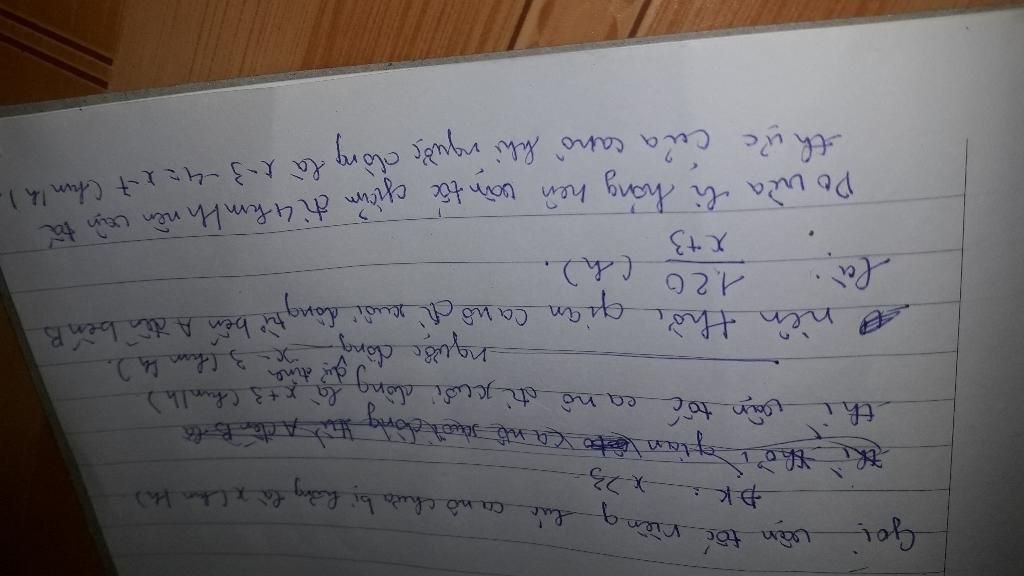 Gọi vận tốc riêng lúc canô chưa bị hỏng là x (km/h)
ĐK: x > 3
thì thời gian canô xuôi dòng từ A đến B là
thì vận tốc canô đi xuôi dòng là x+3 (km/h)
ngược dòng x-3 (km/h).
nên thời gian canô đi xuôi dòng từ bến A đến bến B
là: 120/x+3 (h).
Do vừa bị hỏng nên vận tốc giảm đi 4km/h nên vận tốc
thực của canô khi ngược dòng là x-3-4=x-7 (km/h).